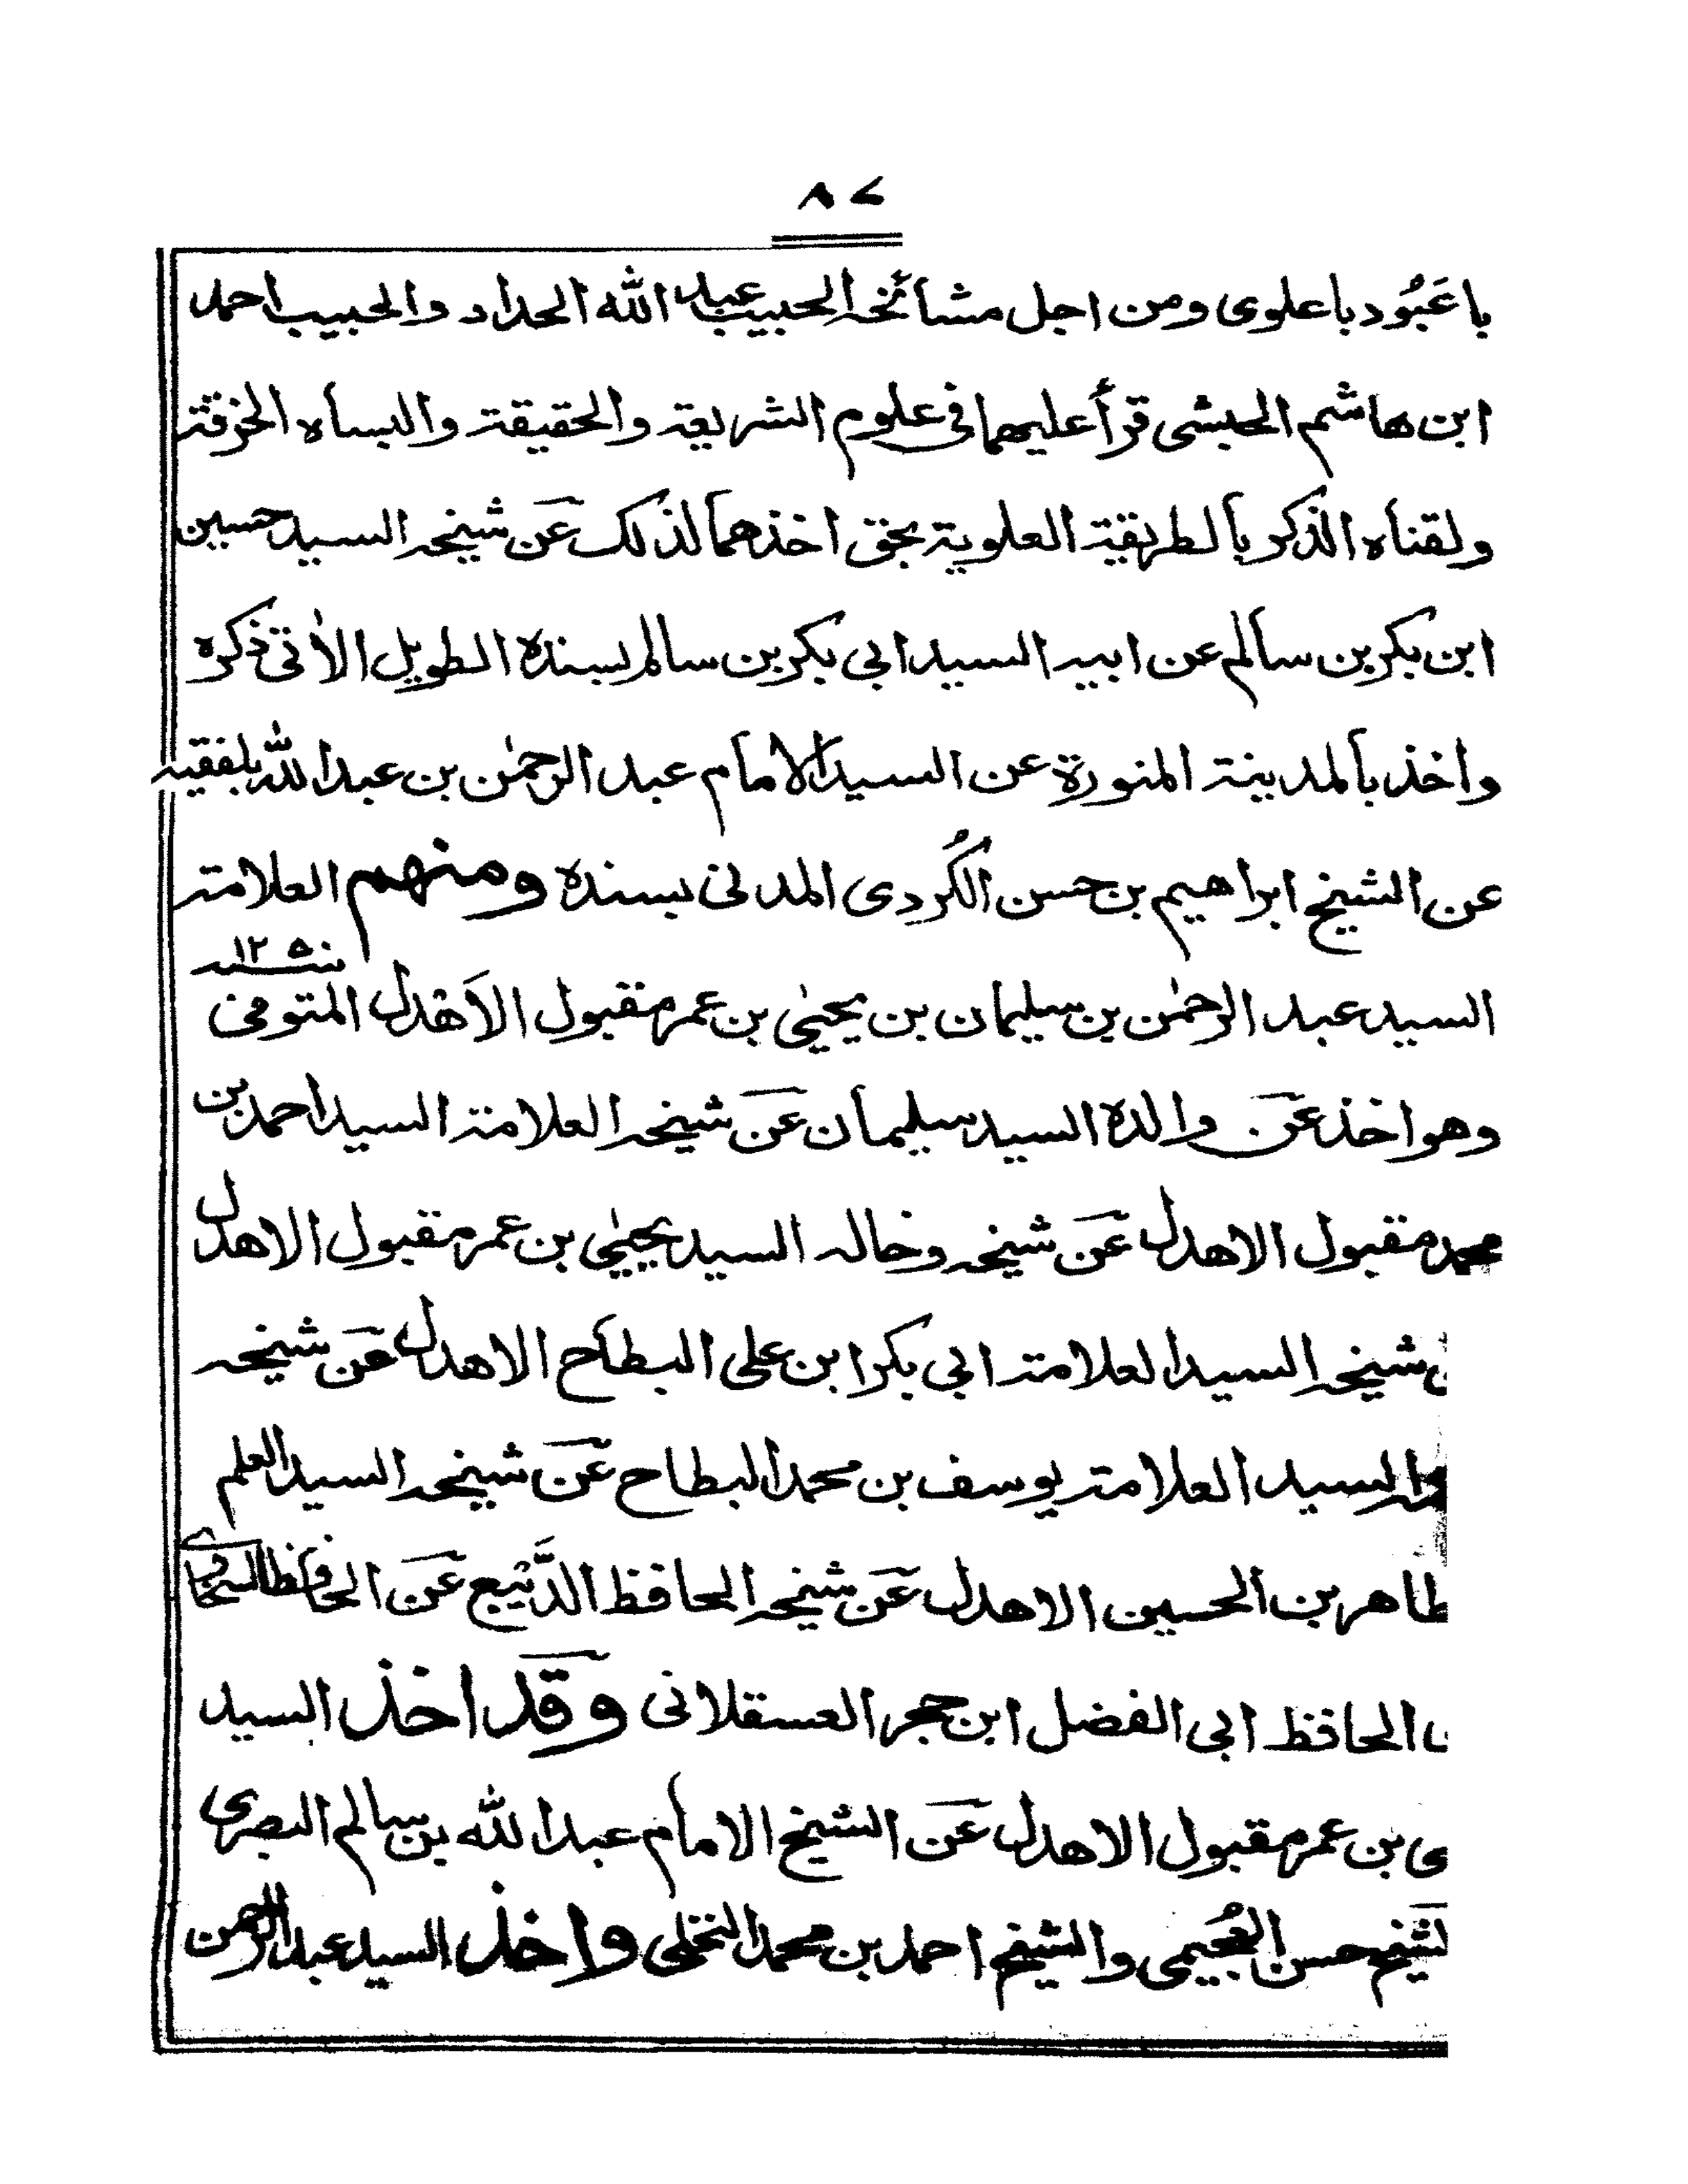 ٨٧
باعَبُود باعلوى ومن اجل مشائخه الحبيب عبد الله الحداد والحبيب احمد
ابن هاشم الحبشى قرأ عليهما فى علوم الشريعة والحقيقة والبساه الخرقة
ولقناه الذكر بالطريقة العلوية بحق اخذهما لذلك عَن شيخه السيد حسين
ابن بكر بن سالم عن ابيه السيد ابي بكر بن سالم بسنده الطويل الاٰتى ذكره
واخذ بالمدينة المنورة عن السيد الامام عبد الرحمٰن بن عبد الله بلفقيه
عن الشيخ ابراهيم بن حسن الكُردى المدنى بسنده ومنهم العلامة
السيد عبد الرحمٰن بن سليمان بن يحيٰى بن عمر مقبول الاَهْدل المتوفى سنة ١٢٥٠
وهو اخذ عَن والده السيد سليمان عَن شيخه العلامة السيد احمد بن
محمد مقبول الاهدل عَن شيخه وخاله السيد يحيٰى بن عمر مقبول الاهدل
شيخه السيد العلامة ابي بكر ابن على البطاح الاهدل عَن شيخه
والسيد العلامة يوسف بن محمد البطاح عَن شيخه السيد العلم
طاهر بن الحسين الاهدل عَن شيخه الحافظ الدَّيْبع عَن الحافظ السخاوى
الحافظ ابي الفضل ابن حجر العسقلانى وقد اخذ السيد
ى بن عمر مقبول الاهدل عَن الشيخ الامام عبد الله بن سالم البصرى
لشيخ حسن العُجيمى والشيخ احمد بن محمد النخلى واخذ السيد عبد الرحمن